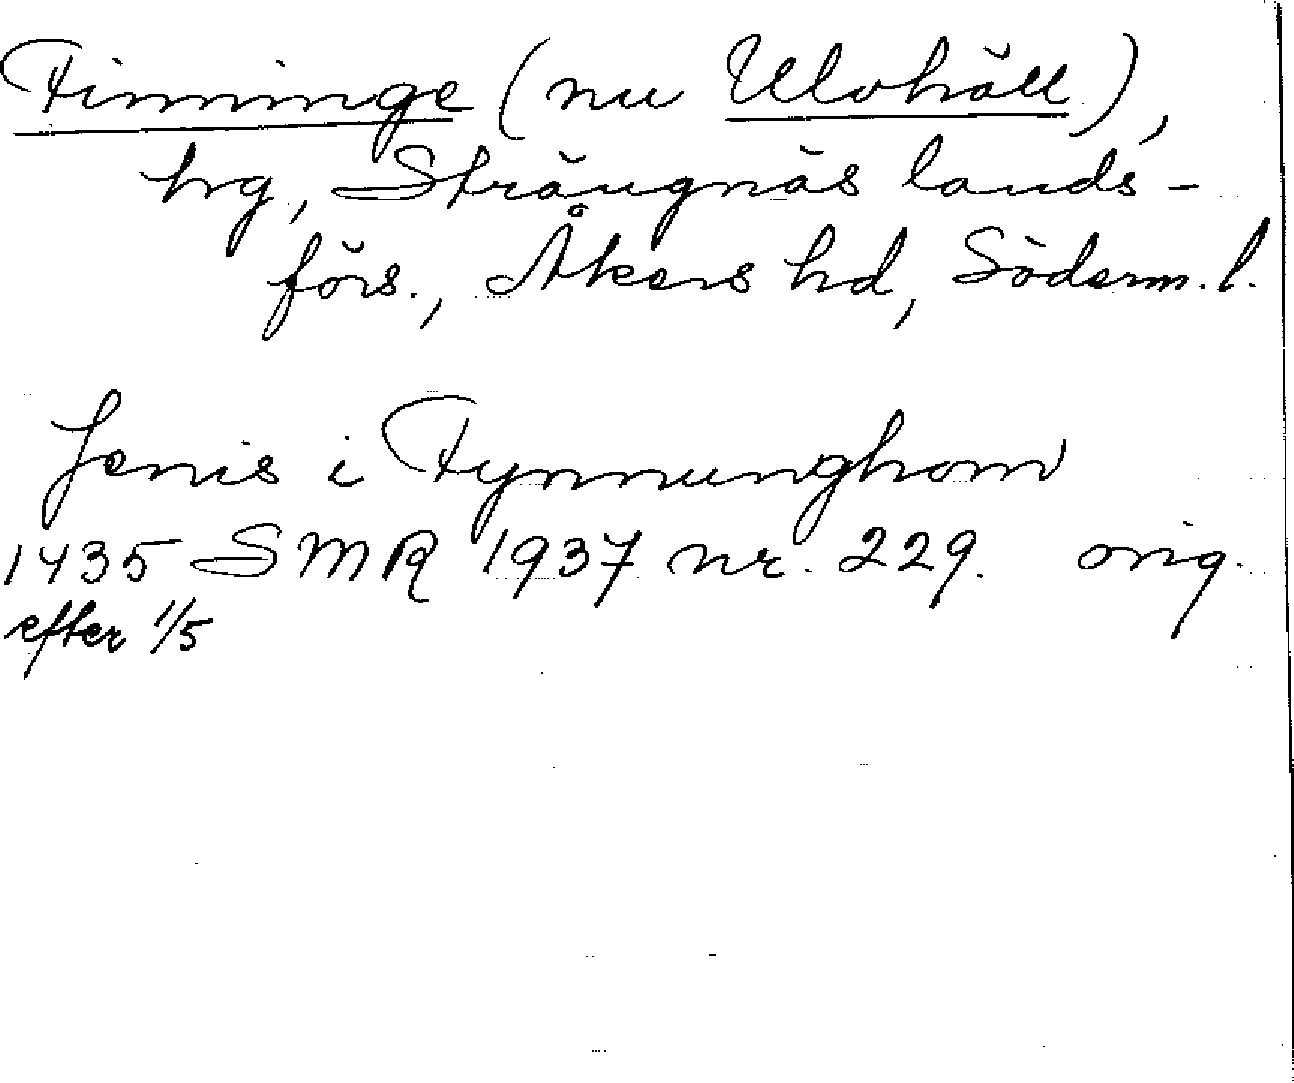 Finninge (nu Ulvhäll),
hg, Strängnäs lands-
förs., Åkers hd, Söderm. l.
Jenis i Fynnunghom
1435 SMR 1937 nr. 229. orig.
efter 1/5